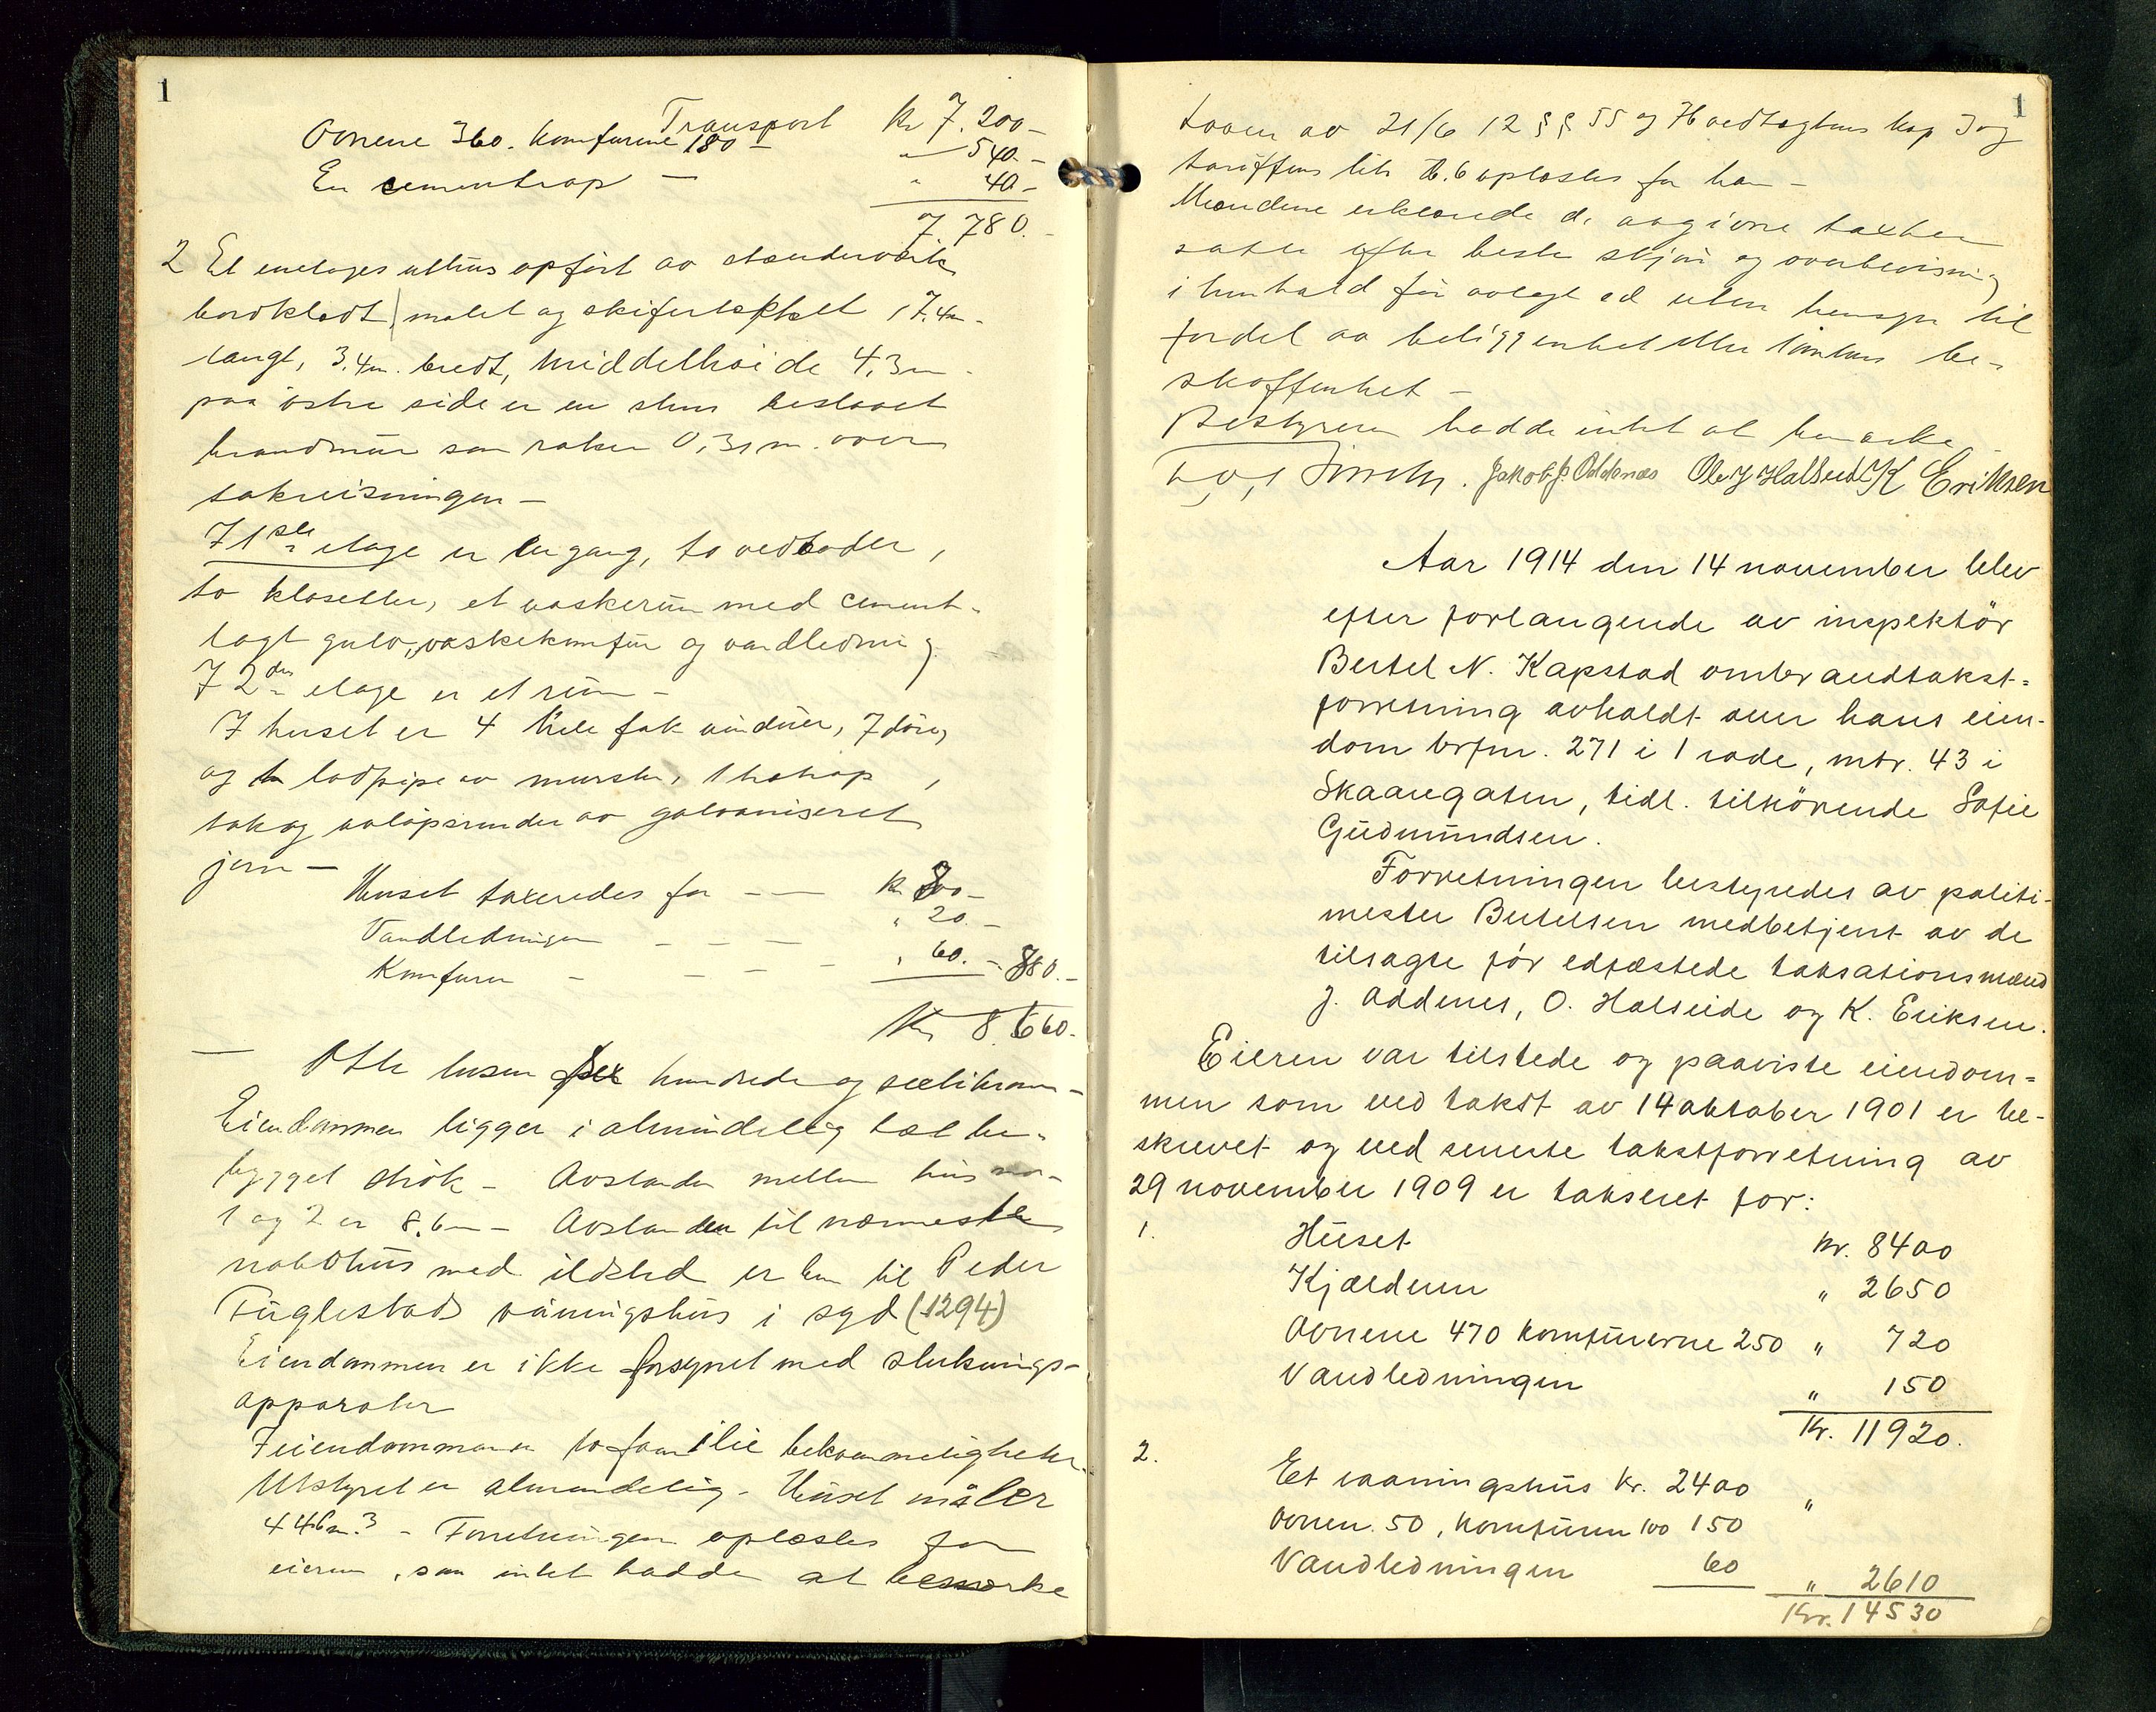 1
Transport Kr 7.200 -
Ovnene 360. Komfurene 180 - " 540. -
En cementtrap - " 40 -
7.780. -
2 Et enetages uthus opført av stenderverk
bordklædt, malet og skifertækket 17.4m -
langt, 3.4m. bredt, Middelhøide 4,3m -
paa østre side er en
brandmur som raker 0,31m. over
takreisningen -
I 1ste etage er en gang, to vedboder,
to klosetter, et vaskerum med cement-
lagt gulv, vaskekomfur og vandledning
I 2den etage er et rum -
I huset er 4 hele fak vinduer, 7 døre,
og en lodpipe av mursten, 1
tak og avløpsrender av galvaniseret
jern -
Huset taxeredes for - - Kr 800 -
Vandledningen - - - " 20. -
Komfuren - - - - " 60. - 880. -
Kr 8.660. -
- Otte tusen sex hundrede og seksti kroner -
Eiendommen ligger i almindelig tæt be-
bygget strøk - Avstanden mellem hus no -
1 og 2 er 8.6m - Avstanden til nærmeste
nabohus med ildsted er til Peder
Fuglestads våningshus i syd (1294)
Eiendommen er ikke forsynet med sluknings-
apparater
I eiendommen er to familie bekvemmeligheter.
Utstyret er almindelig - Huset måler
446m.3 - Forretningen oplæstes for
eieren, som intet hadde at bemærke
1
Loven av 21/6 12 §§ 55 og Kap I og
tariffens lit. B.6 oplæstes for ham -
Mændene erklærede de avgivne taxter
satte efter beste skjøn og overbevisning
i henhold før avlagt ed uten hensyn til
fordel av beliggenhet eller tomtens be-
skaffenhet -
Bestyreren hadde intet at bemærke
Jakob J. Oddenæs Ole J Halseide K Eriksen
Aar 1914 den 14 november blev
efter forlangende av inspektör
Bertel N. Kapstad ombrandtakst-
forretning avholdt over hans eien-
dom brfnr. 271 i 1 rode, mtr. 43 i
Skaaregaten, tidl. tilhörende Sofie
Gudmundsen.
Forretningen bestyredes av politi-
mester Bertelsen medbetjent av de
tilsagte för edfæstede taksationsmænd
J. Oddenes, O. Halseide og K. Eriksen.
Eieren var tilstede og paaviste eiendom-
men som ved takst av 14 oktober 1901 er be-
skrevet og ved seneste takstforretning av
29 november 1909 er takseret for:
1. Huset Kr. 8400
Kjælderen " 2650
Ovnene 470 komfurerne 250 " 720
Vandledningen " 150
Kr. 11920.
2. Et vaaningshus Kr. 2400 "
Ovnen 50, komfuren 100 150
Vandledningen 60 " 2610
Kr. 14530